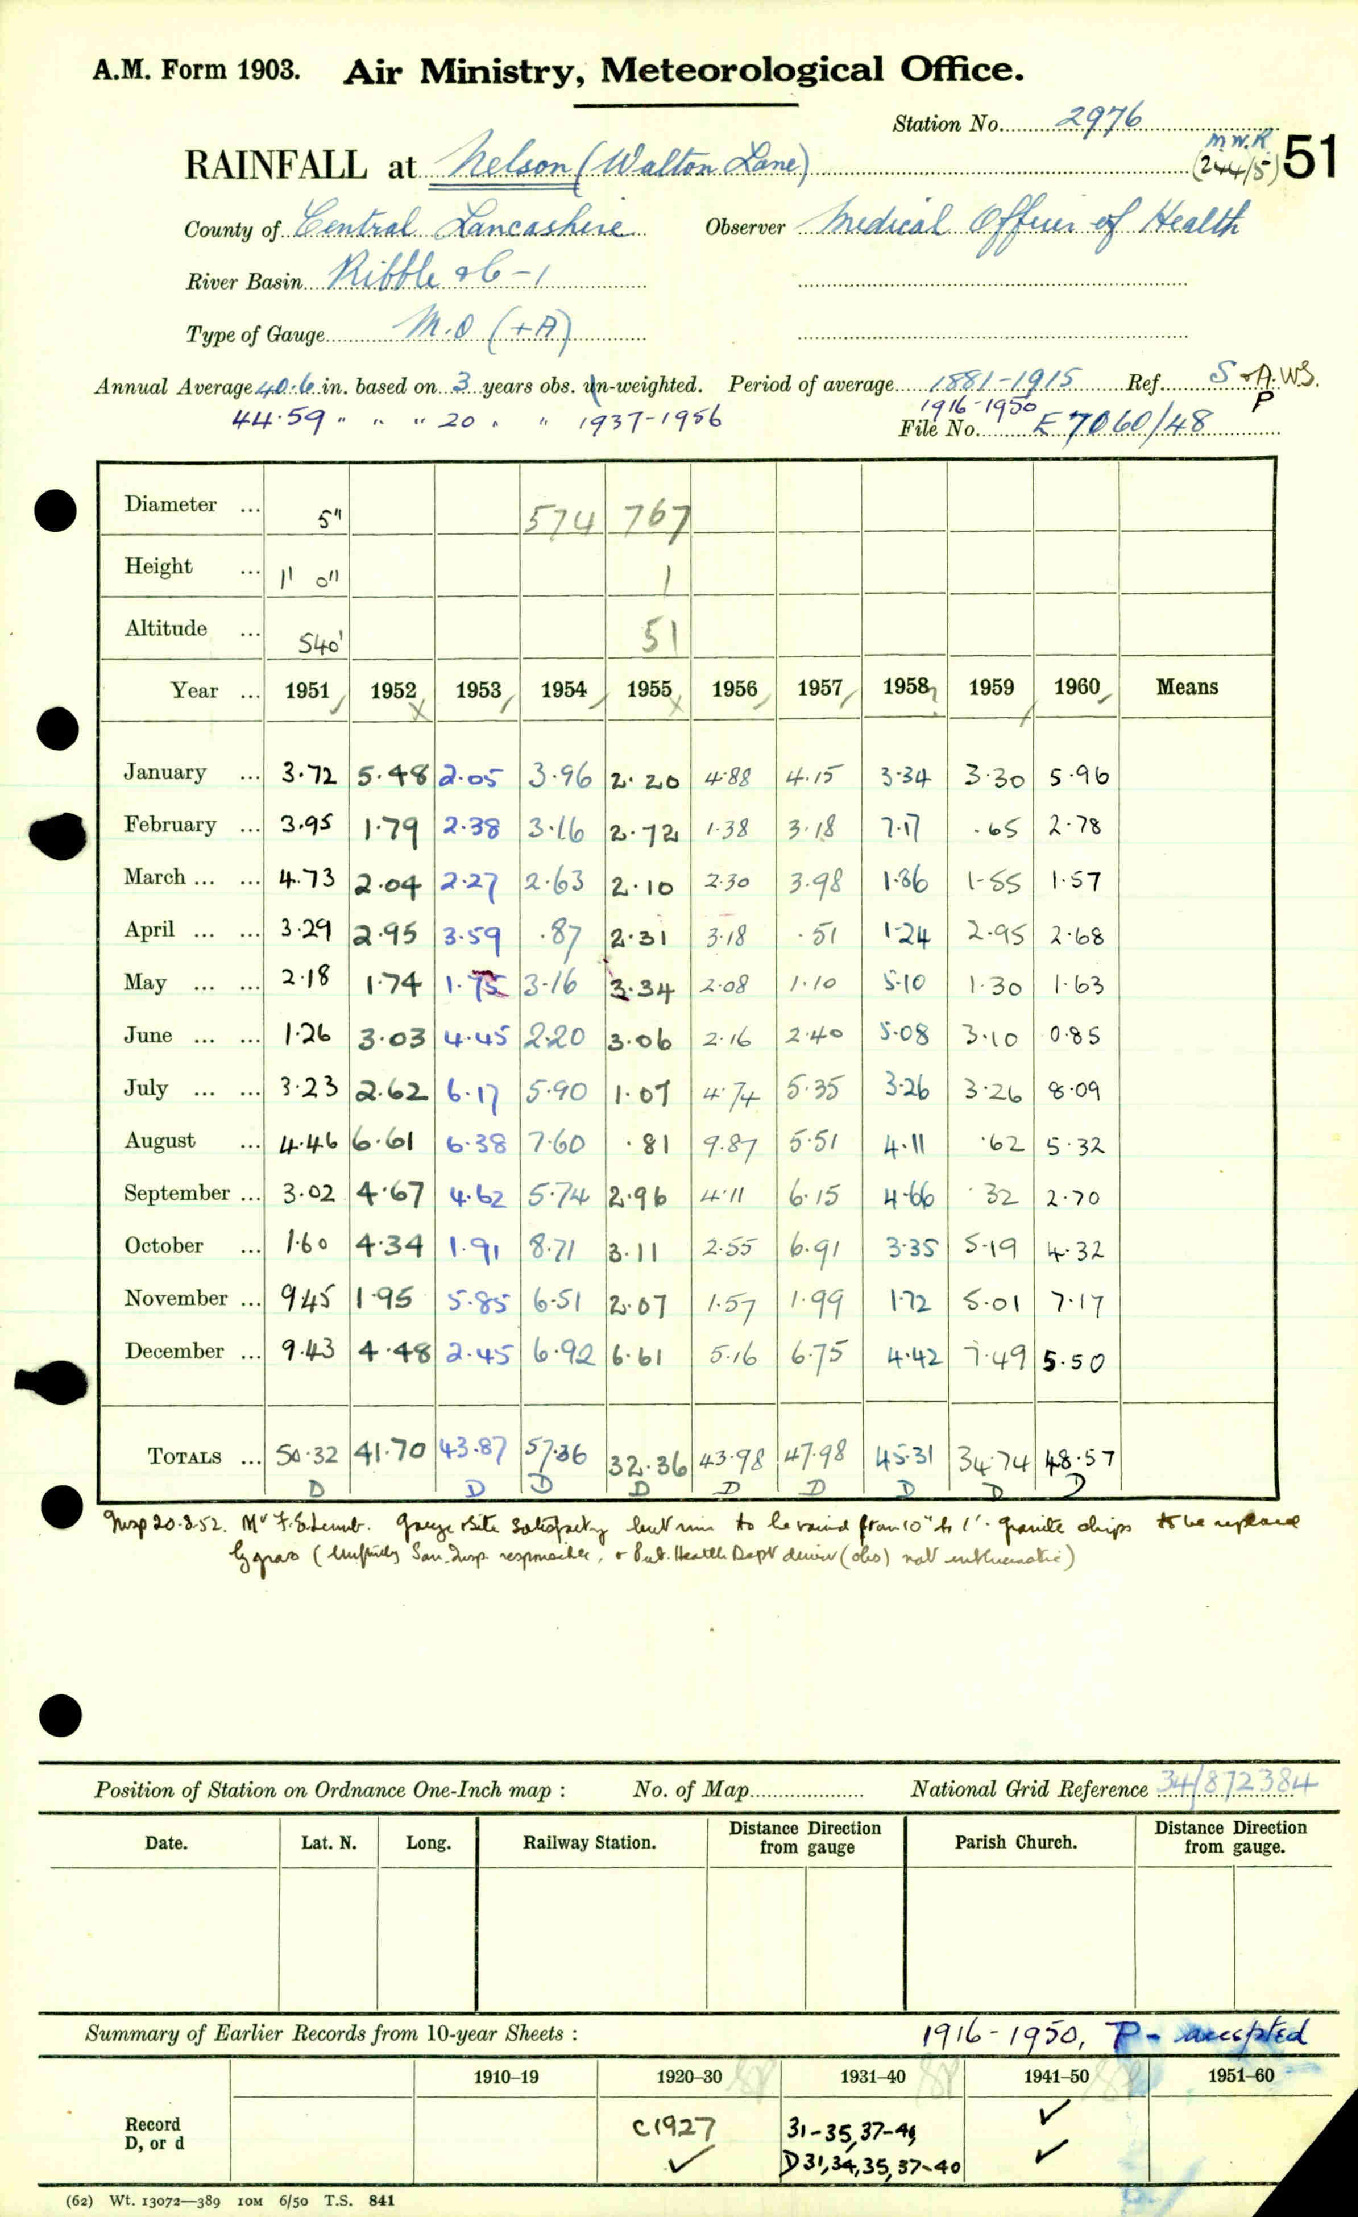 A.M. Form 1903. Air Ministry, Meteorological Office.
Station No. 2976
M.W.R
RAINFALL at Nelson (Walton Lane) (244/5) 51
County of Central Lancashire Observer Medical Officer of Health
River Basin Ribble &c - 1
Type of Gauge M.O (+A)
Annual Average 40.6 in. based on 3 years obs. un-weighted. Period of average 1881-1915 Ref. S & A.W.S.
44.59 " " " 20 " " 1937-1956 1916-1950 P
File No. E 7060/48
Diameter ... 5" 574 767
Height ... 1' 0" 1
Altitude ... 540' 51
Year ... 1951 1952 1953 1954 1955 1956 1957 1958 1959 1960 Means
January ... 3.72 5.48 2.05 3.96 2.20 4.88 4.15 3.34 3.30 5.96
February ... 3.95 1.79 2.38 3.16 2.72 1.38 3.18 7.17 .65 2.78
March ... ... 4.73 2.04 2.27 2.63 2.10 2.30 3.98 1.36 1.55 1.57
April ... ... 3.29 2.95 3.59 .87 2.31 3.18 .51 1.24 2.95 2.68
May ... ... 2.18 1.74 1.75 3.16 3.34 2.08 1.10 5.10 1.30 1.63
June ... ... 1.26 3.03 4.45 2.20 3.06 2.16 2.40 5.08 3.10 0.85
July ... ... 3.23 2.62 6.17 5.90 1.07 4.74 5.35 3.26 3.26 8.09
August ... 4.46 6.61 6.38 7.60 .81 9.87 5.51 4.11 .62 5.32
September ... 3.02 4.67 4.62 5.74 2.96 4.11 6.15 4.66 .32 2.70
October ... 1.60 4.34 1.91 8.71 3.11 2.55 6.91 3.35 5.19 4.32
November ... 9.45 1.95 5.85 6.51 2.07 1.57 1.99 1.72 5.01 7.17
December ... 9.43 4.48 2.45 6.92 6.61 5.16 6.75 4.42 7.49 5.50
TOTALS ... 50.32 41.70 43.87 57.36 32.36 43.98 47.98 45.31 34.74 48.57
D D D D D D D D D
Insp 20.8.52. Mr F. Gauge & Site Satisfactory but rim to be raised from 10" to 1'. granite chips to be replaced
by grass ( San. Insp. responsible, & Pub. Health Dept (obs) not enthusiastic)
Position of Station on Ordnance One-Inch map : No. of Map National Grid Reference 34/872384
Date. Lat. N. Long. Railway Station. Distance Direction from gauge Parish Church. Distance Direction from gauge.
Summary of Earlier Records from 10-year Sheets : 1916-1950, P - accepted
1910–19 1920–30 1931–40 1941–50 1951–60
Record C1927 31-35, 37-40, ✓
D, or d ✓ D 31, 34, 35, 37-40 ✓
(62) Wt. 13072—389 10M 6/50 T.S. 841